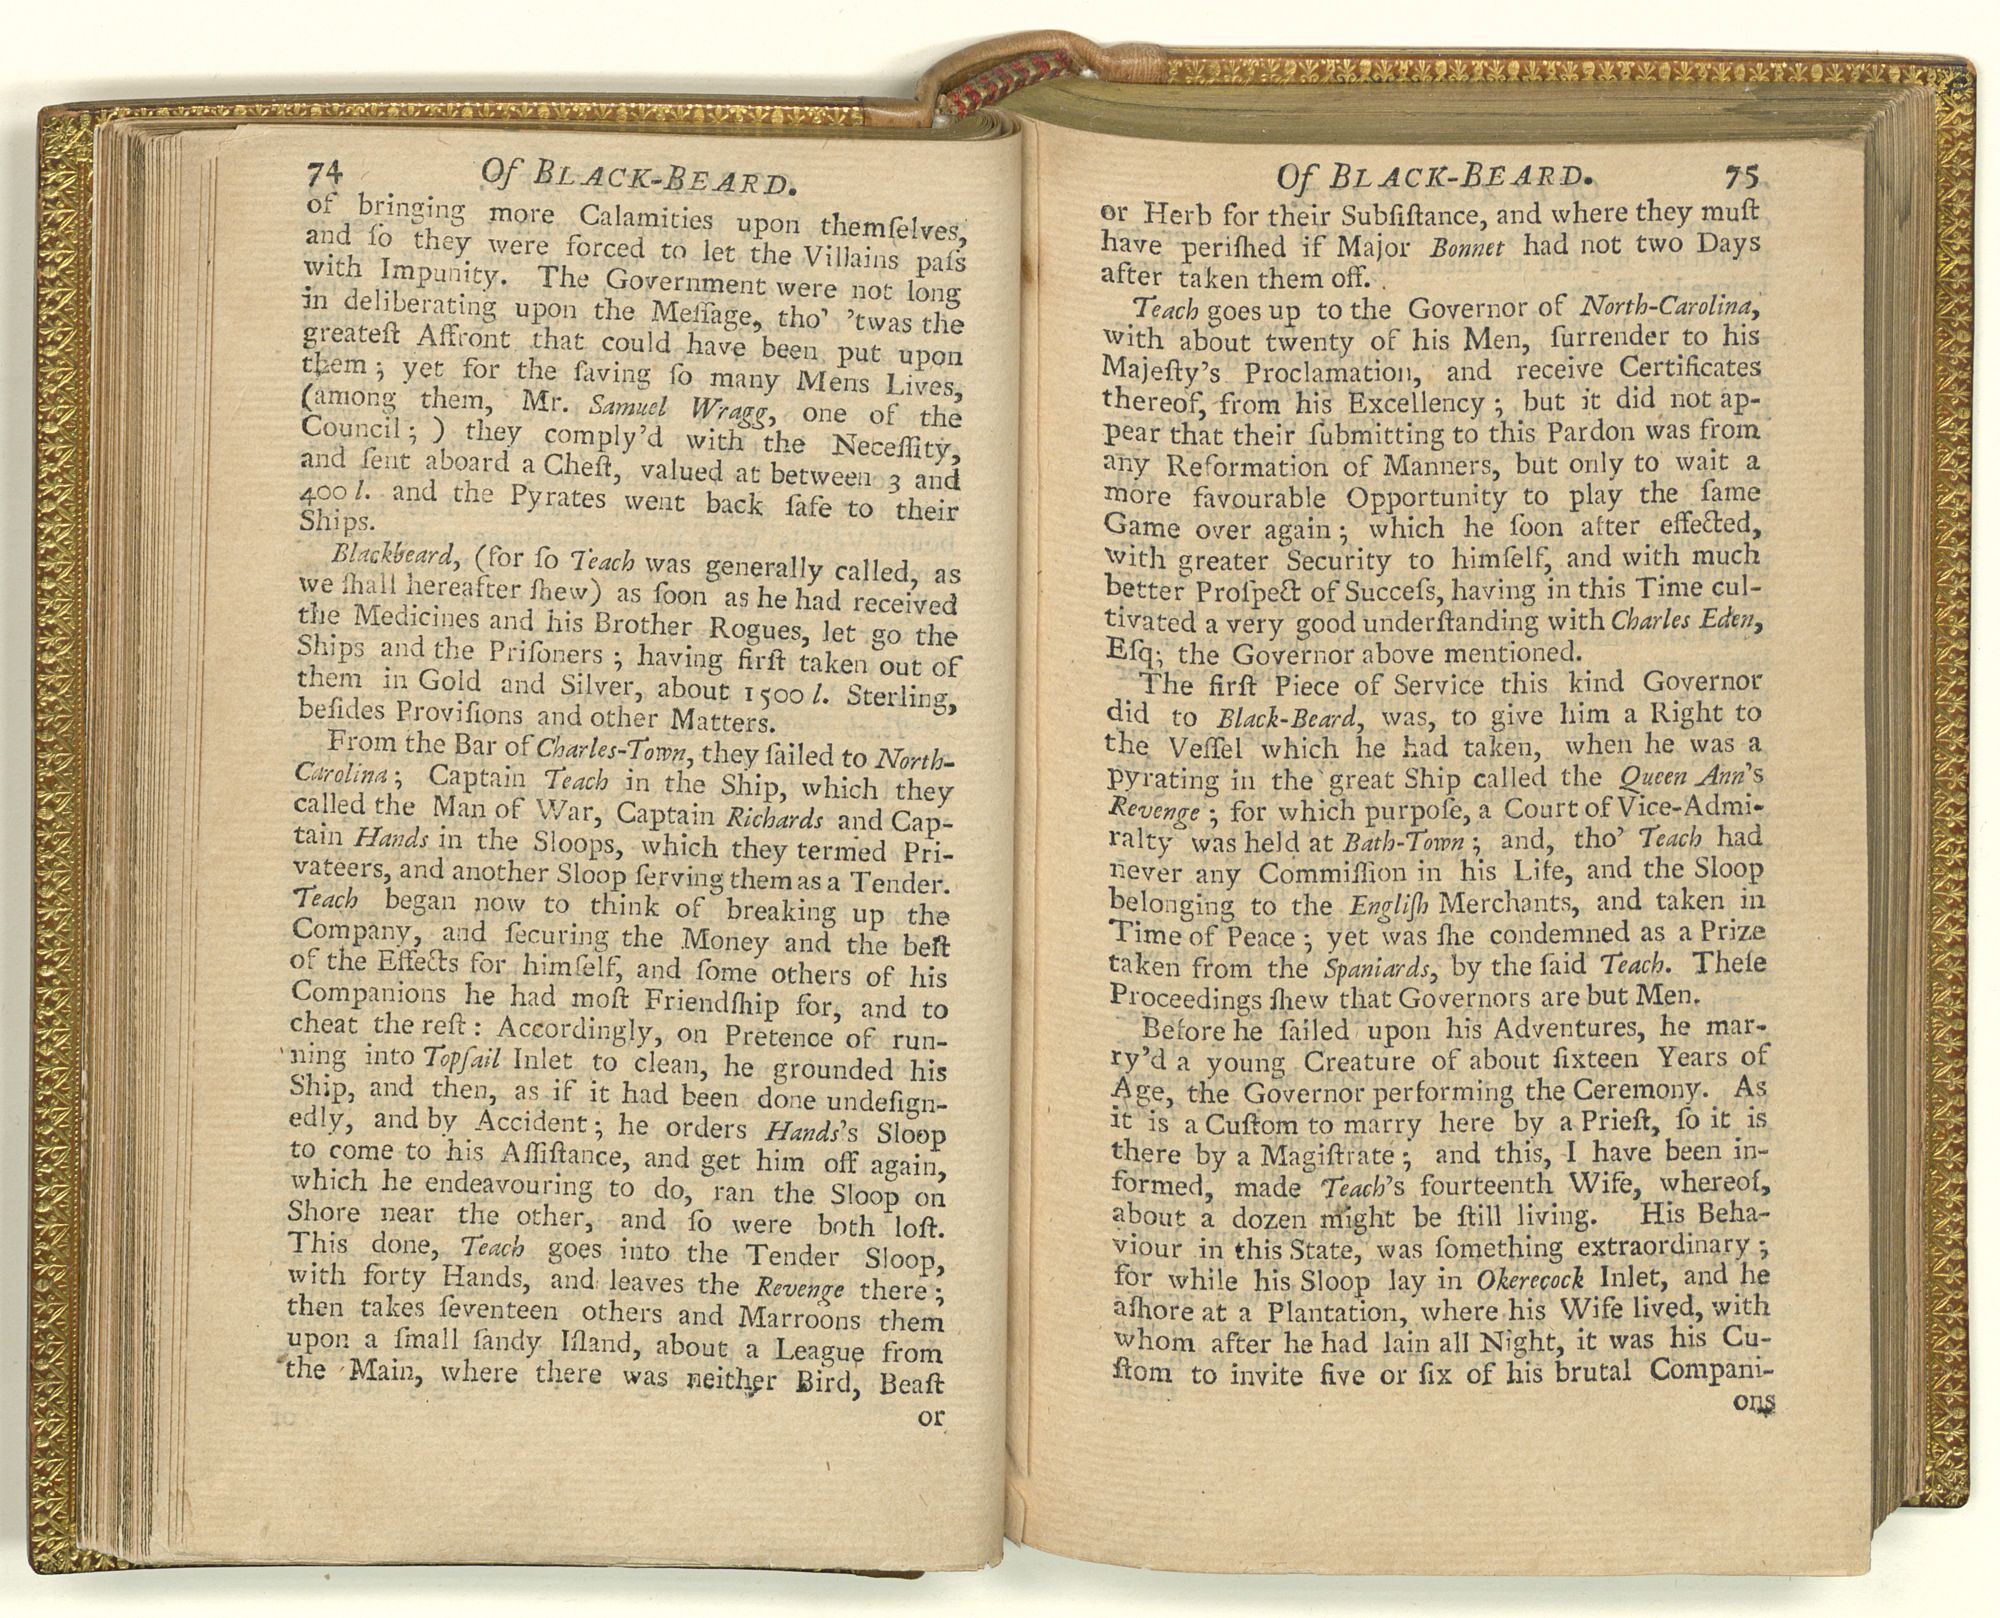 74 Of BLACK-BEARD.
of bringing more Calamities upon themſelves,
and ſo they were forced to let the Villains paſs
with Impunity. The Government were not long
in deliberating upon the Meſſage, tho' 'twas the
greateſt Affront that could have been put upon
them; yet for the ſaving ſo many Mens Lives,
(among them, Mr. Samuel Wragg, one of the
Council;) they comply'd with the Neceſſity,
and ſent aboard a Cheſt, valued at between 3 and
400 l. and the Pyrates went back ſafe to their
Ships.
Blackbeard, (for ſo Teach was generally called, as
we ſhall hereafter ſhew) as ſoon as he had received
the Medicines and his Brother Rogues, let go the
Ships and the Priſoners; having firſt taken out of
them in Gold and Silver, about 1500 l. Sterling,
beſides Proviſions and other Matters.
From the Bar of Charles-Town, they ſailed to North-
Carolina; Captain Teach in the Ship, which they
called the Man of War, Captain Richards and Cap-
tain Hands in the Sloops, which they termed Pri-
vateers, and another Sloop ſerving them as a Tender.
Teach began now to think of breaking up the
Company, and ſecuring the Money and the beſt
of the Effects for himſelf, and ſome others of his
Companions he had moſt Friendſhip for, and to
cheat the reſt: Accordingly, on Pretence of run-
ning into Topſail Inlet to clean, he grounded his
Ship, and then, as if it had been done undeſign-
edly, and by Accident; he orders Hands's Sloop
to come to his Aſſiſtance, and get him off again,
which he endeavouring to do, ran the Sloop on
Shore near the other, and ſo were both loſt.
This done, Teach goes into the Tender Sloop,
with forty Hands, and leaves the Revenge there;
then takes ſeventeen others and Marroons them
upon a ſmall ſandy Iſland, about a League from
the Main, where there was neither Bird, Beaſt
or
Of BLACK-BEARD. 75
or Herb for their Subſiſtance, and where they muſt
have periſhed if Major Bonnet had not two Days
after taken them off.
Teach goes up to the Governor of North-Carolina,
with about twenty of his Men, ſurrender to his
Majeſty's Proclamation, and receive Certificates
thereof, from his Excellency; but it did not ap-
pear that their ſubmitting to this Pardon was from
any Reformation of Manners, but only to wait a
more favourable Opportunity to play the ſame
Game over again; which he ſoon after effected,
with greater Security to himſelf, and with much
better Proſpect of Succeſs, having in this Time cul-
tivated a very good underſtanding with Charles Eden,
Eſq; the Governor above mentioned.
The firſt Piece of Service this kind Governor
did to Black-Beard, was, to give him a Right to
the Veſſel which he had taken, when he was a
pyrating in the great Ship called the Queen Ann's
Revenge; for which purpoſe, a Court of Vice-Admi-
ralty was held at Bath-Town; and, tho' Teach had
never any Commiſſion in his Life, and the Sloop
belonging to the Engliſh Merchants, and taken in
Time of Peace; yet was ſhe condemned as a Prize
taken from the Spaniards, by the ſaid Teach. Theſe
Proceedings ſhew that Governors are but Men.
Before he ſailed upon his Adventures, he mar-
ry'd a young Creature of about ſixteen Years of
Age, the Governor performing the Ceremony. As
it is a Cuſtom to marry here by a Prieſt, ſo it is
there by a Magiſtrate; and this, I have been in-
formed, made Teach's fourteenth Wife, whereof,
about a dozen might be ſtill living. His Beha-
viour in this State, was ſomething extraordinary;
for while his Sloop lay in Okerecock Inlet, and he
aſhore at a Plantation, where his Wife lived, with
whom after he had lain all Night, it was his Cu-
ſtom to invite five or ſix of his brutal Compani-
ons